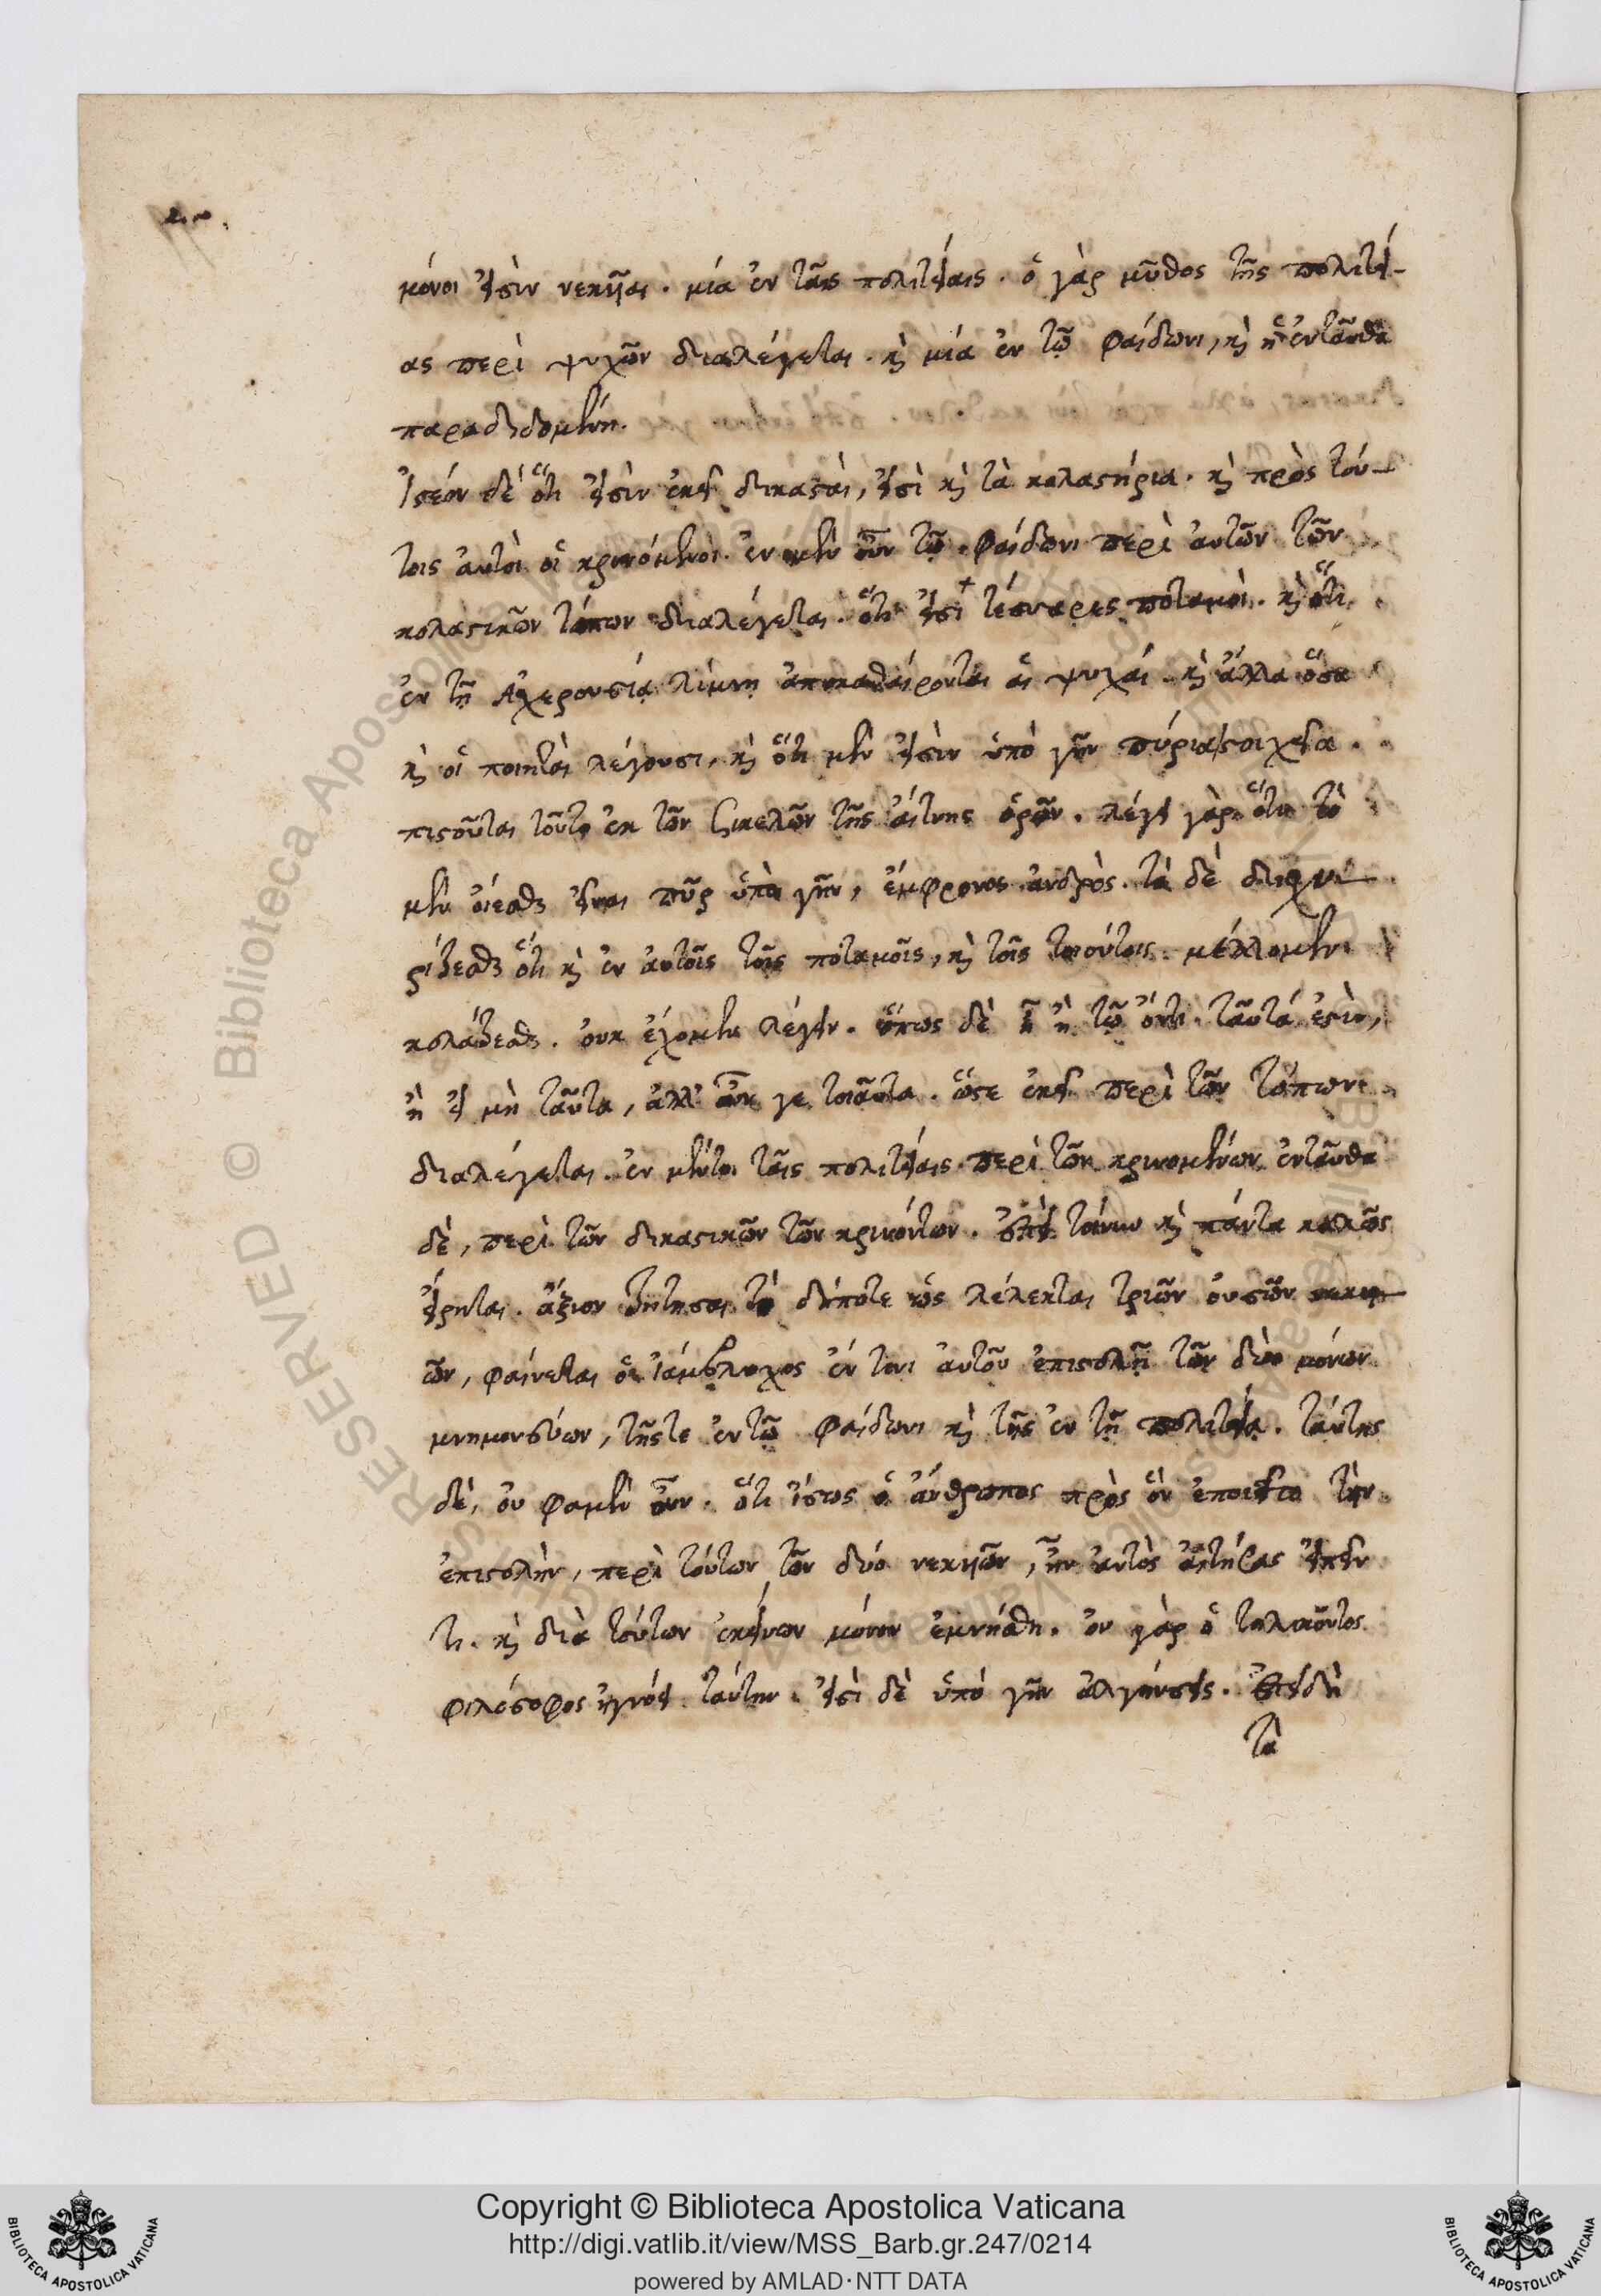 μόνοι εἰσὶν νεκυῖαι. μία ἐν ταῖς πολιτείαις. ὁ γὰρ μῦθος τῆς πολιτεί-
ας περὶ ψυχῶν διαλέγεται. κὴ μία ἐν τῷ Φαίδωνι, κὴ ἡ ἐνταῦθα
παραδιδομένη.
Ἰστέον δὲ ὅτι εἰσὶν ἐκεῖ δικασταὶ, εἰσὶ κὴ τὰ κολαστήρια. κὴ πρὸς τού-
τοις αὐτοὶ οἱ κρινόμενοι. ἐν μὲν οὖν τῷ Φαίδωνι περὶ αὐτῶν τῶν
κολαστικῶν τόπων διαλέγεται. ὅτι εἰσὶ τέσσαρες ποταμοὶ. κὴ ὅτι
ἐν τῇ Ἀχερουσίᾳ λίμνῃ ἀποκαθαίρονται αἱ ψυχαί. κὴ ἄλλα ὅσα
κὴ οἱ ποιηταὶ λέγουσι, κὴ ὅτι μὲν εἰσὶν ὑπὸ γῆν πύρια στοιχεῖα.
πιστοῦται τοῦτο ἐκ τῶν Σικελῶν τῆς αἴτνης ὁρῶν. λέγει γὰρ ὅτι τὸ
μὲν οἴεσθαι εἶναι πῦρ ὑπὸ γῆν, ἔμφρονος ἀνδρὸς. τὰ δὲ διισχυ-
ρίζεσθαι ὅτι κὴ ἐν αὐτοῖς τοῖς ποταμοῖς, κὴ τοῖς τοιούτοις μέλλομεν
κολάζεσθαι. οὐκ ἔχομεν λέγειν. ὅπως δὲ ἢ ἢ τῷ ὄντι ταῦτά ἐστὶν,
ἢ εἰ μὴ ταῦτα, ἀλλ' οὖν γε τοιαῦτα. ὥστε ἐκεῖ περὶ τῶν τόπων
διαλέγεται. ἐν μέντοι ταῖς πολιτείαις περὶ τῶν κρινομένων ἐνταῦθα
δὲ, περὶ τῶν δικαστικῶν τῶν κρινόντων. ἐπεὶ τοίνυν κὴ πάντα καλῶς
εἴρηται. ἄξιον ζητῆσαι τί δήποτε ὡς λέλεκται τριῶν οὐσῶν νεκυι-
ῶν, φαίνεται ὁ ἰάμβλιχος ἔν τινι αὐτοῦ ἐπιστολῇ τῶν δύο μόνων
μνημονεύων, τῆς τε ἐν τῷ Φαίδωνι κὴ τῆς ἐν τῇ πολιτείᾳ. ταύτης
δὲ, οὐ φαμὲν οὖν. ὅτι ἴσως ὁ ἄνθρωπος πρὸς ὃν ἐποιεῖτο τὴν
ἐπιστολὴν, περὶ τούτων τῶν δύο νεκυιῶν, ἦν αὐτὸς αἰτήσας εἰπεῖν
τι. κὴ διὰ τούτων ἐκείνων μόνον ἐμνήσθη. οὐ γὰρ ὁ τηλικοῦτος
φιλόσοφος ἠγνόει ταύτην. εἰσὶ δὲ ὑπὸ γῆν ἀλγήνσεις. ἐπειδὴ
τὰ
Copyright © Biblioteca Apostolica Vaticana
http://digi.vatlib.it/view/MSS_Barb.gr.247/0214
powered by AMLAD·NTT DATA